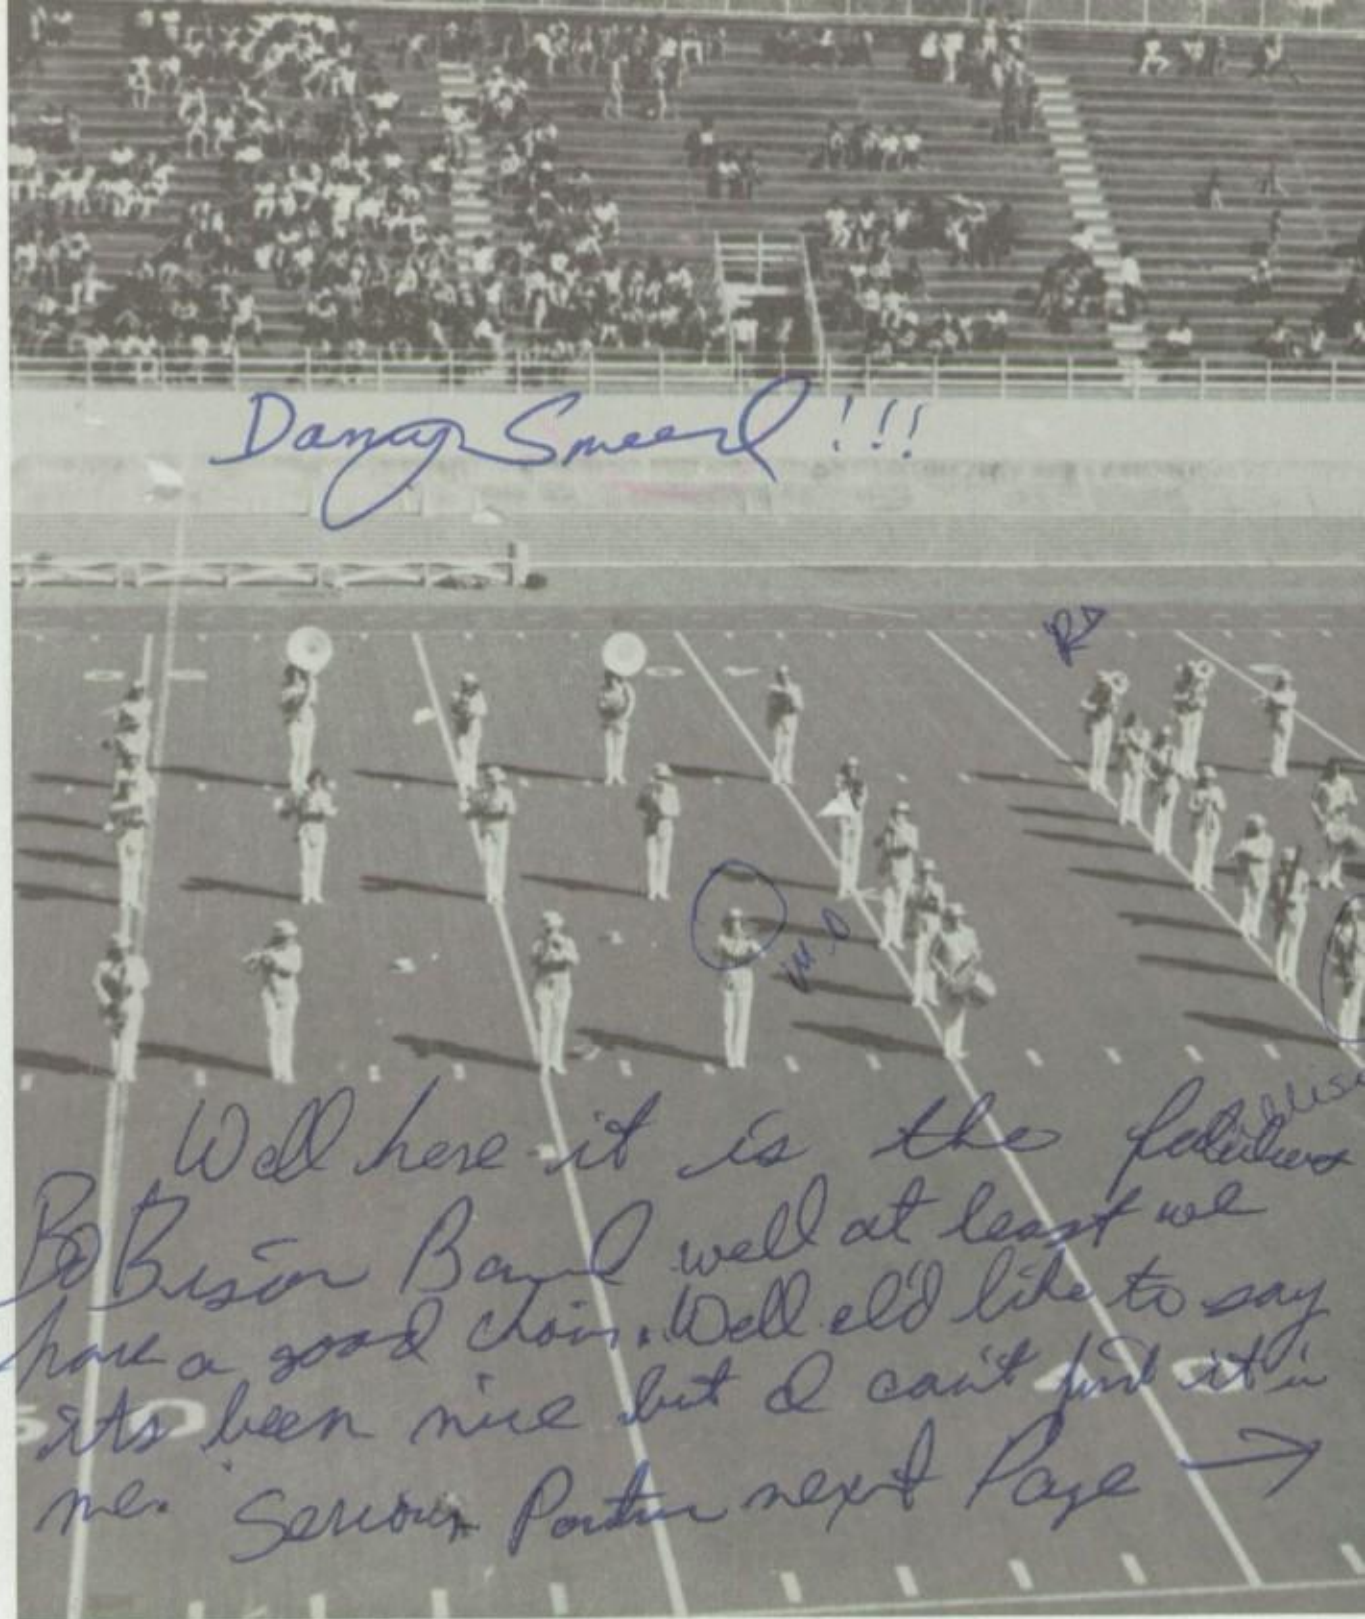 Dancy Smeed!!!
me
Well here it is the fabulous
Bo Bison Band well at least we
have a good choir. Well I'd like to say
its been nice but I can't find it in
me. Serious Portion next Page →
50
40